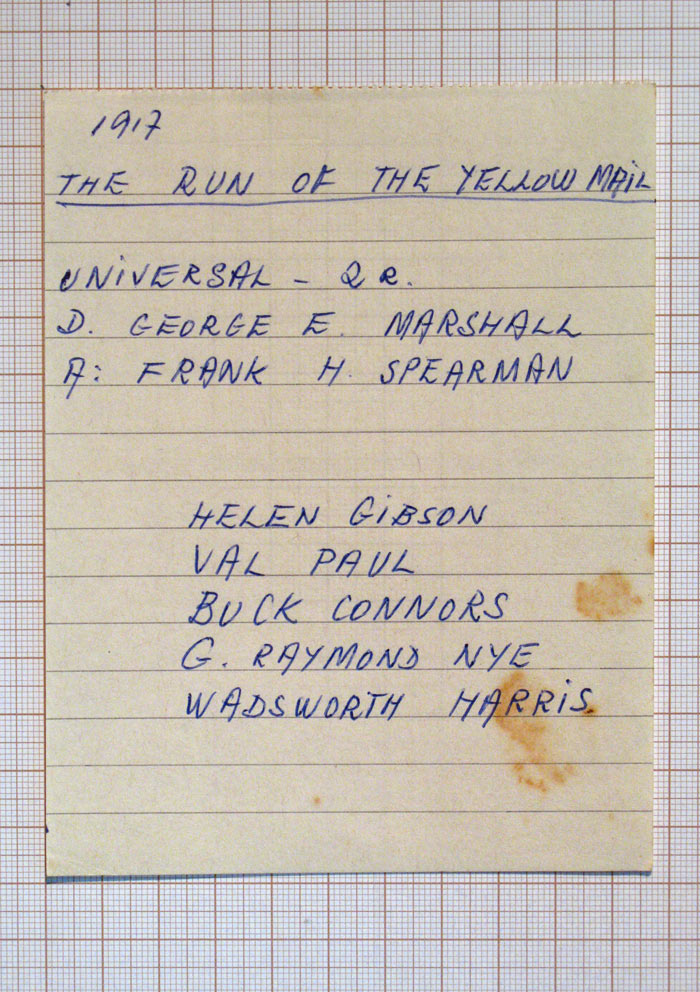 1917
THE RUN OF THE YELLOW MAiL
UNiVERSAL - 2 R.
D. GEORGE E. MARSHALL
A: FRANK H. SPEARMAN
HELEN GiBSON
VAL PAUL
BUCK CONNORS
G. RAYMOND NYE
WADSWORTH HARRiS